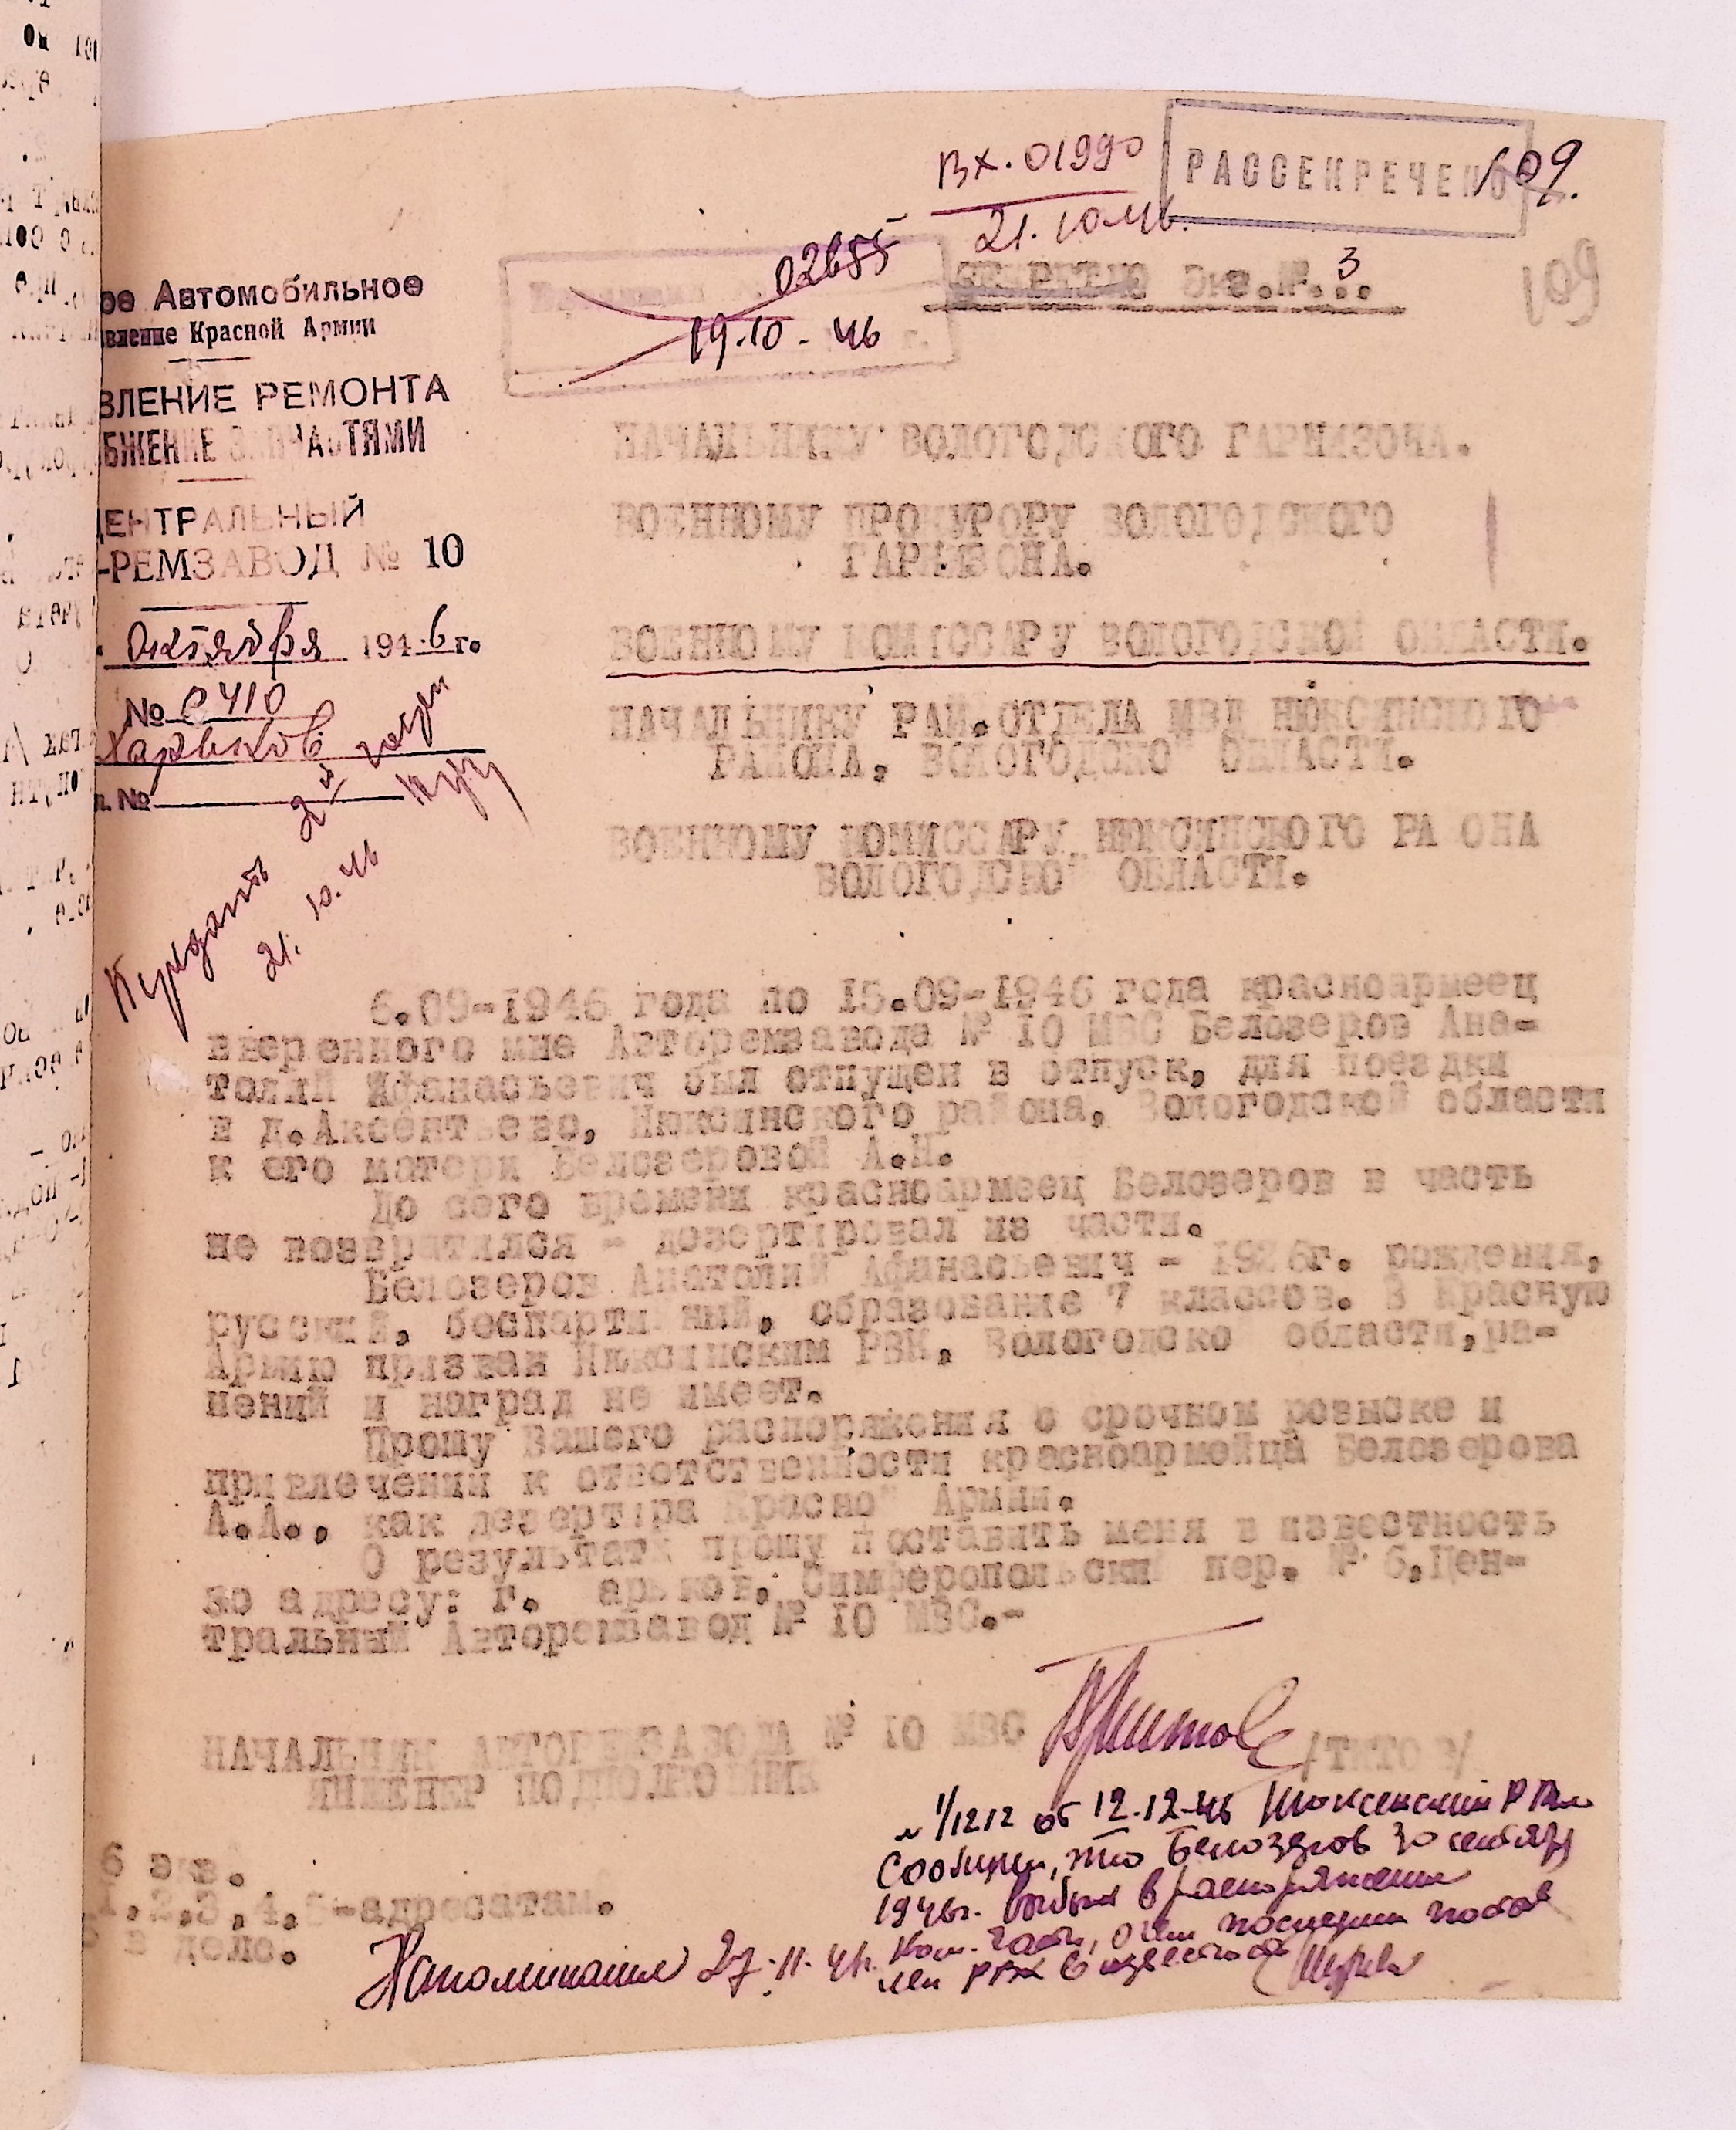 Вх. 01990
21.10.46.
РАССЕКРЕЧЕНО
109.
109
02655
19.10.46 г.
СЕКРЕТНО Экз.№ 3
ое Автомобильное
вление Красной Армии
ВЛЕНИЕ РЕМОНТА
БЖЕНИЕ ЗАПЧАСТЯМИ
ЦЕНТРАЛЬНЫЙ
-РЕМЗАВОД № 10
Октября 1946 г.
№ 0410
Харьков
л. №
2й
21.10.46
НАЧАЛЬНИКУ ВОЛОГОДСКОГО ГАРНИЗОНА.
ВОЕННОМУ ПРОКУРОРУ ВОЛОГОДСКОГО
ГАРНИЗОНА.
ВОЕННОМУ КОМИССАРУ ВОЛОГОДСКОЙ ОБЛАСТИ.
НАЧАЛЬНИКУ РАЙ.ОТДЕЛА МВД НЮКСИНСКОГО
РАЙОНА, ВОЛОГОДСКОЙ ОБЛАСТИ.
ВОЕННОМУ КОМИССАРУ НЮКСИНСКОГО РАЙОНА
ВОЛОГОДСКОЙ ОБЛАСТИ.
6.09-1946 года по 15.09-1946 года красноармеец
вверенного мне Авторемзавода № 10 МВС Белозеров Ана-
толий Афанасьевич был отпущен в отпуск, для поездки
в д.Аксентьево, Нюксинского района, Вологодской области
к его матери Белозеровой А.Н.
До сего времени красноармеец Белозеров в часть
не возвратился - дезертировал из части.
Белозеров Анатолий Афанасьевич - 1926г. рождения,
русский, беспартийный, образование 7 классов. В Красную
Армию призван Нюксинским РВК, Вологодской области, ра-
нений и наград не имеет.
Прошу Вашего распоряжения о срочном розыске и
привлечении к ответственности красноармейца Белозерова
А.А., как дезертира Красной Армии.
О результатах прошу поставить меня в известность
по адресу: г. Харьков, Симферопольский пер. № 6, Цен-
тральный Авторемзавод № 10 МВС.-
НАЧАЛЬНИК АВТОРЕМЗАВОДА № 10 МВС
ИНЖЕНЕР ПОДПОЛКОВНИК
/ТИТОВ/
6 экз.
1,2,3,4,5-адресатам.
6 в дело.
Напоминание 27.11.46.
№ 1/1212 от 12.12-46 Нюксенский РВК
сообщил, что Белозеров 30 сентября
1946г. выбыл в распоряжение
ком. части, о чем последний постав
лен РВК в известность